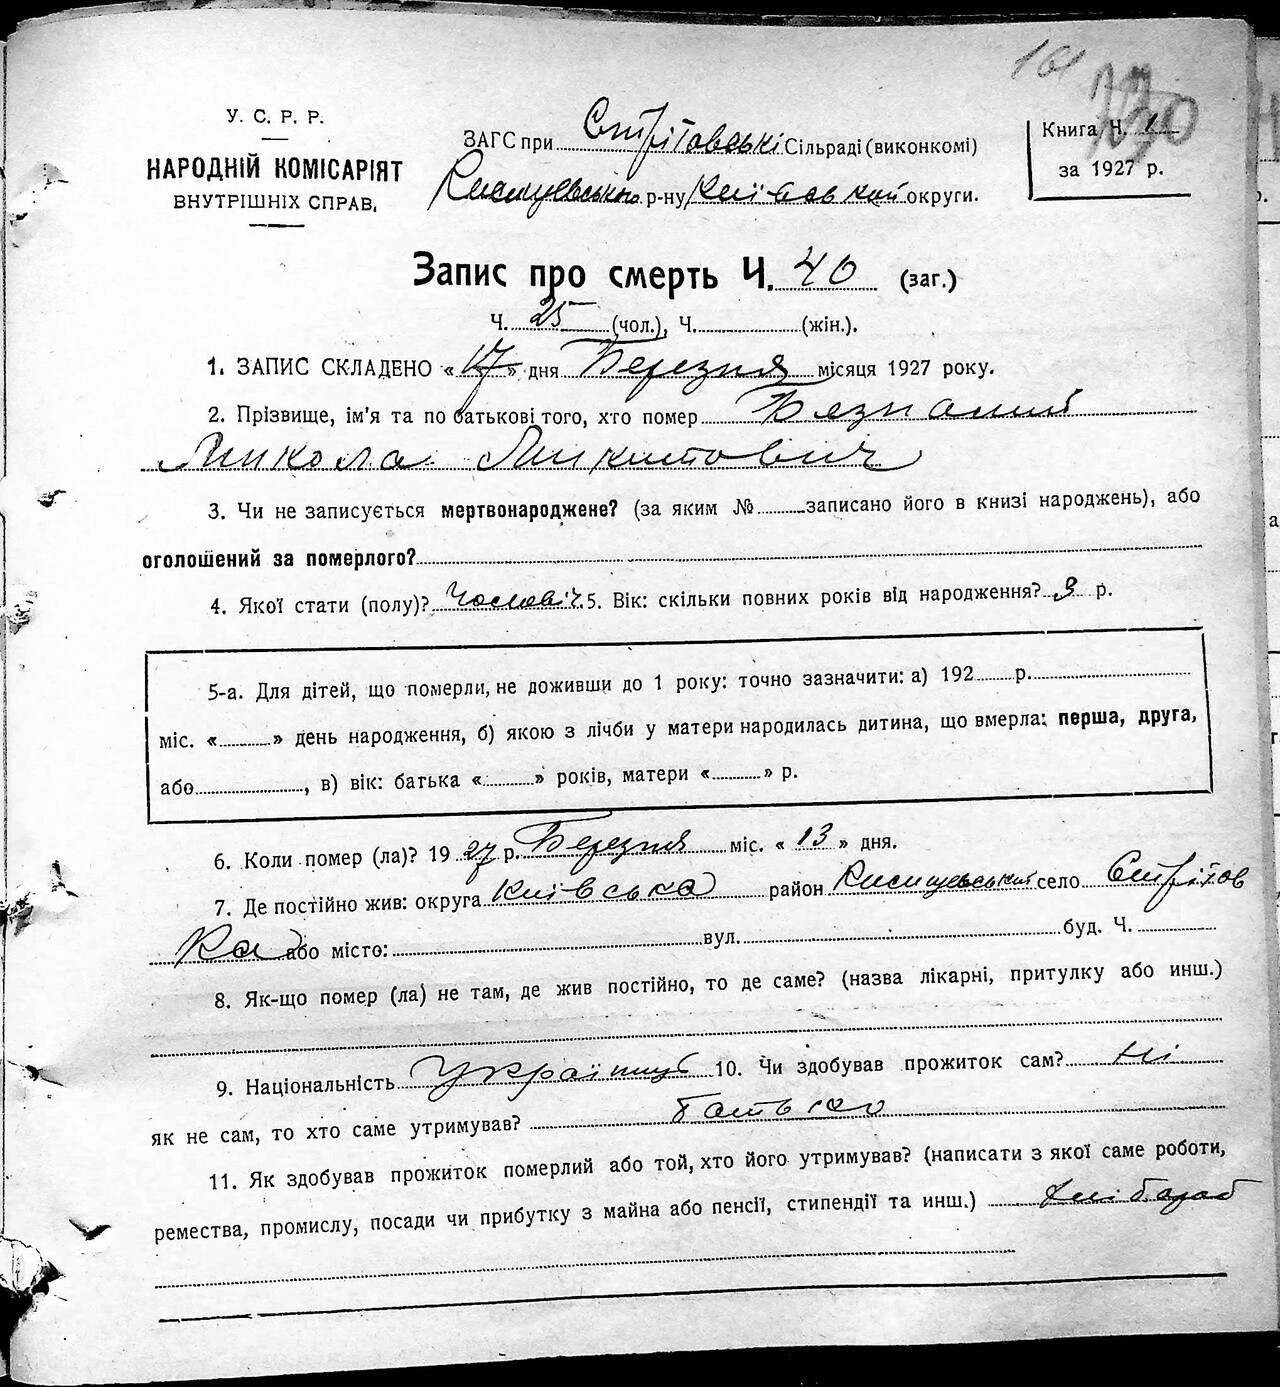 161
730
У. С. Р. Р.
НАРОДНІЙ КОМІСАРІЯТ
ВНУТРІШНІХ СПРАВ,
ЗАГС при Стрітовські Сільраді (виконкомі)
р-ну Київській округи.
Книга Ч. 1
за 1927 р.
Запис про смерть Ч. 40 (заг.)
Ч. 25 (чол.), Ч. (жін.).
1. ЗАПИС СКЛАДЕНО « 17 » дня Березня місяця 1927 року.
2. Прізвище, ім'я та по батькові того, хто помер
Микола Микитович
3. Чи не записується мертвонароджене? (за яким № записано його в книзі народжень), або
оголошений за померлого?
4. Якої стати (полу)? Чоловіч. 5. Вік: скільки повних років від народження? 3 р.
5-а. Для дітей, що померли, не доживши до 1 року: точно зазначити: а) 192 р.
міс. « » день народження, б) якою з лічби у матери народилась дитина, що вмерла: перша, друга,
або , в) вік: батька « » років, матери « » р.
6. Коли помер (ла)? 19 27 р. Березня міс. « 13 » дня.
7. Де постійно жив: округа Київська район село Стрітов
ка або місто: вул. буд. Ч.
8. Як-що помер (ла) не там, де жив постійно, то де саме? (назва лікарні, притулку або инш.)
9. Національність Українец 10. Чи здобував прожиток сам? Ні
як не сам, то хто саме утримував? батько
11. Як здобував прожиток померлий або той, хто його утримував? (написати з якої саме роботи,
ремества, промислу, посади чи прибутку з майна або пенсії, стипендії та инш.) хлібороб